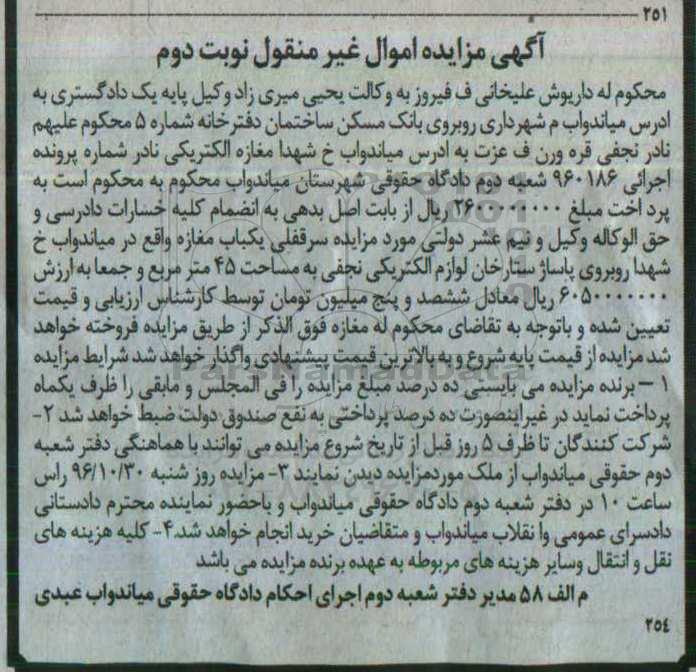 ۲۵۱
آگهی مزایده اموال غیر منقول نوبت دوم
محکوم له داریوش علیخانی ف فیروز به وکالت یحیی میری زاد وکیل پایه یک دادگستری به
ادرس میاندواب م شهرداری روبروی بانک مسکن ساختمان دفترخانه شماره ۵ محکوم علیهم
نادر نجفی قره ورن ف عزت به ادرس میاندواب خ شهدا مغازه الکتریکی نادر شماره پرونده
اجرائی ۹۶۰۱۸۶ شعبه دوم دادگاه حقوقی شهرستان میاندواب محکوم به محکوم است به
پرد اخت مبلغ ۲۶۰۰۰۰۰۰۰۰ ریال از بابت اصل بدهی به انضمام کلیه خسارات دادرسی و
حق الوکاله وکیل و نیم عشر دولتی مورد مزایده سرقفلی یکباب مغازه واقع در میاندواب خ
شهدا روبروی پاساژ ستارخان لوازم الکتریکی نجفی به مساحت ۴۵ متر مربع و جمعا به ارزش
۶۰۵۰۰۰۰۰۰۰ ریال معادل ششصد و پنج میلیون تومان توسط کارشناس ارزیابی و قیمت
تعیین شده و باتوجه به تقاضای محکوم له مغازه فوق الذکر از طریق مزایده فروخته خواهد
شد مزایده از قیمت پایه شروع و به بالاترین قیمت پیشنهادی واگذار خواهد شد شرایط مزایده
۱ – برنده مزایده می بایستی ده درصد مبلغ مزایده را فی المجلس و مابقی را ظرف یکماه
پرداخت نماید در غیراینصورت ده درصد پرداختی به نفع صندوق دولت ضبط خواهد شد ۲-
شرکت کنندگان تا ظرف ۵ روز قبل از تاریخ شروع مزایده می توانند با هماهنگی دفتر شعبه
دوم حقوقی میاندواب از ملک موردمزایده دیدن نمایند ۳- مزایده روز شنبه ۹۶/۱۰/۳۰ راس
ساعت ۱۰ در دفتر شعبه دوم دادگاه حقوقی میاندواب و باحضور نماینده محترم دادستانی
دادسرای عمومی وا نقلاب میاندواب و متقاضیان خرید انجام خواهد شد.۴- کلیه هزینه های
نقل و انتقال وسایر هزینه های مربوطه به عهده برنده مزایده می باشد
م الف ۵۸ مدیر دفتر شعبه دوم اجرای احکام دادگاه حقوقی میاندواب عبدی
۲۵۴
ParsNamadData